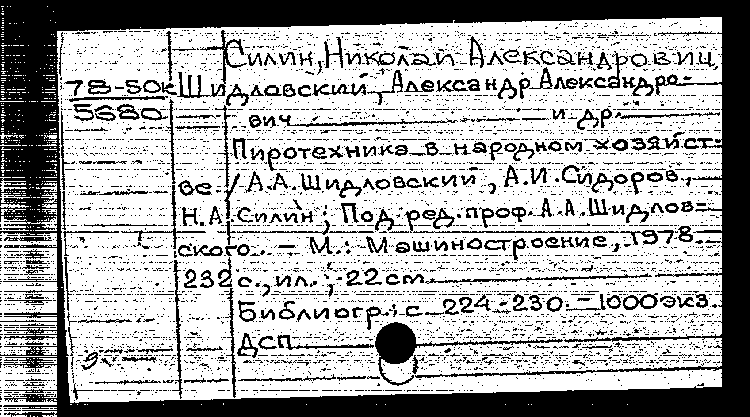 Силин, Николай Александрович
78-50к Шидловский, Александр Александро-
5680 вич и др.
Пиротехника в народном хозяйст-
ве / А.А. Шидловский, А.И. Сидоров,
Н.А. Силин; Под ред. проф. А.А. Шидлов-
ского. – М.: Машиностроение, 1978.
232 с., ил.; 22 см.
Библиогр.: с. 224-230. – 1000 экз.
ДСП